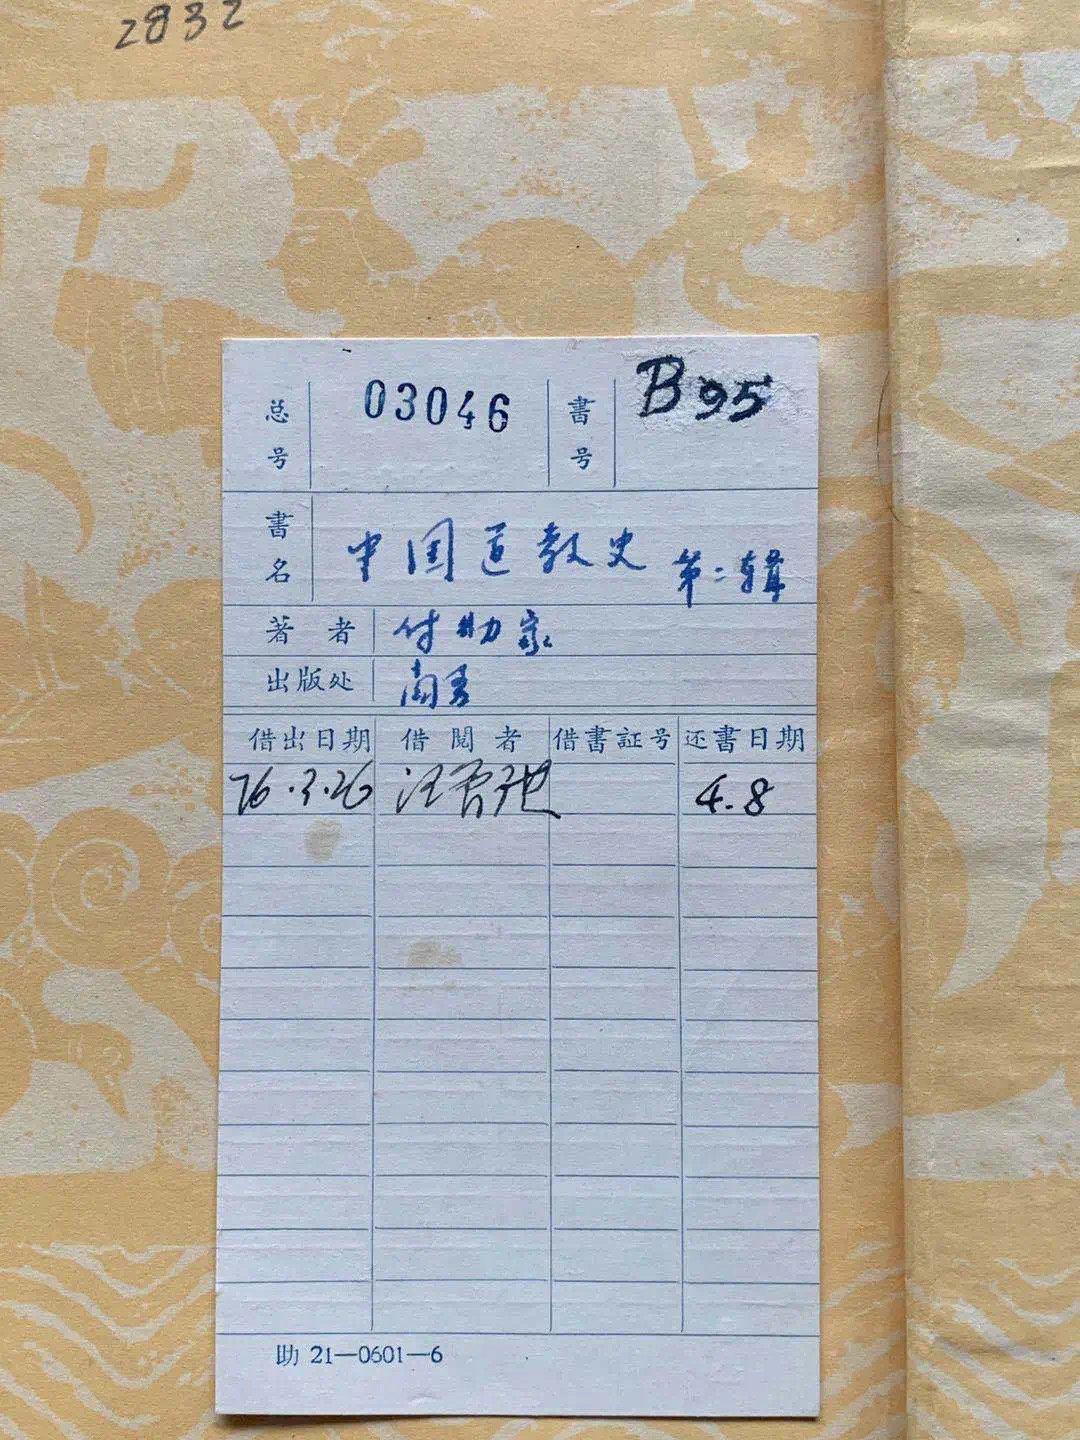 2832
总号 03046 書号 B95
書名 中国道教史 第二辑
著者 付勤家
出版处 商务
借出日期 借閱者 借書証号 还書日期
76.3.26 汪曾祺 4.8
助 21—0601—6